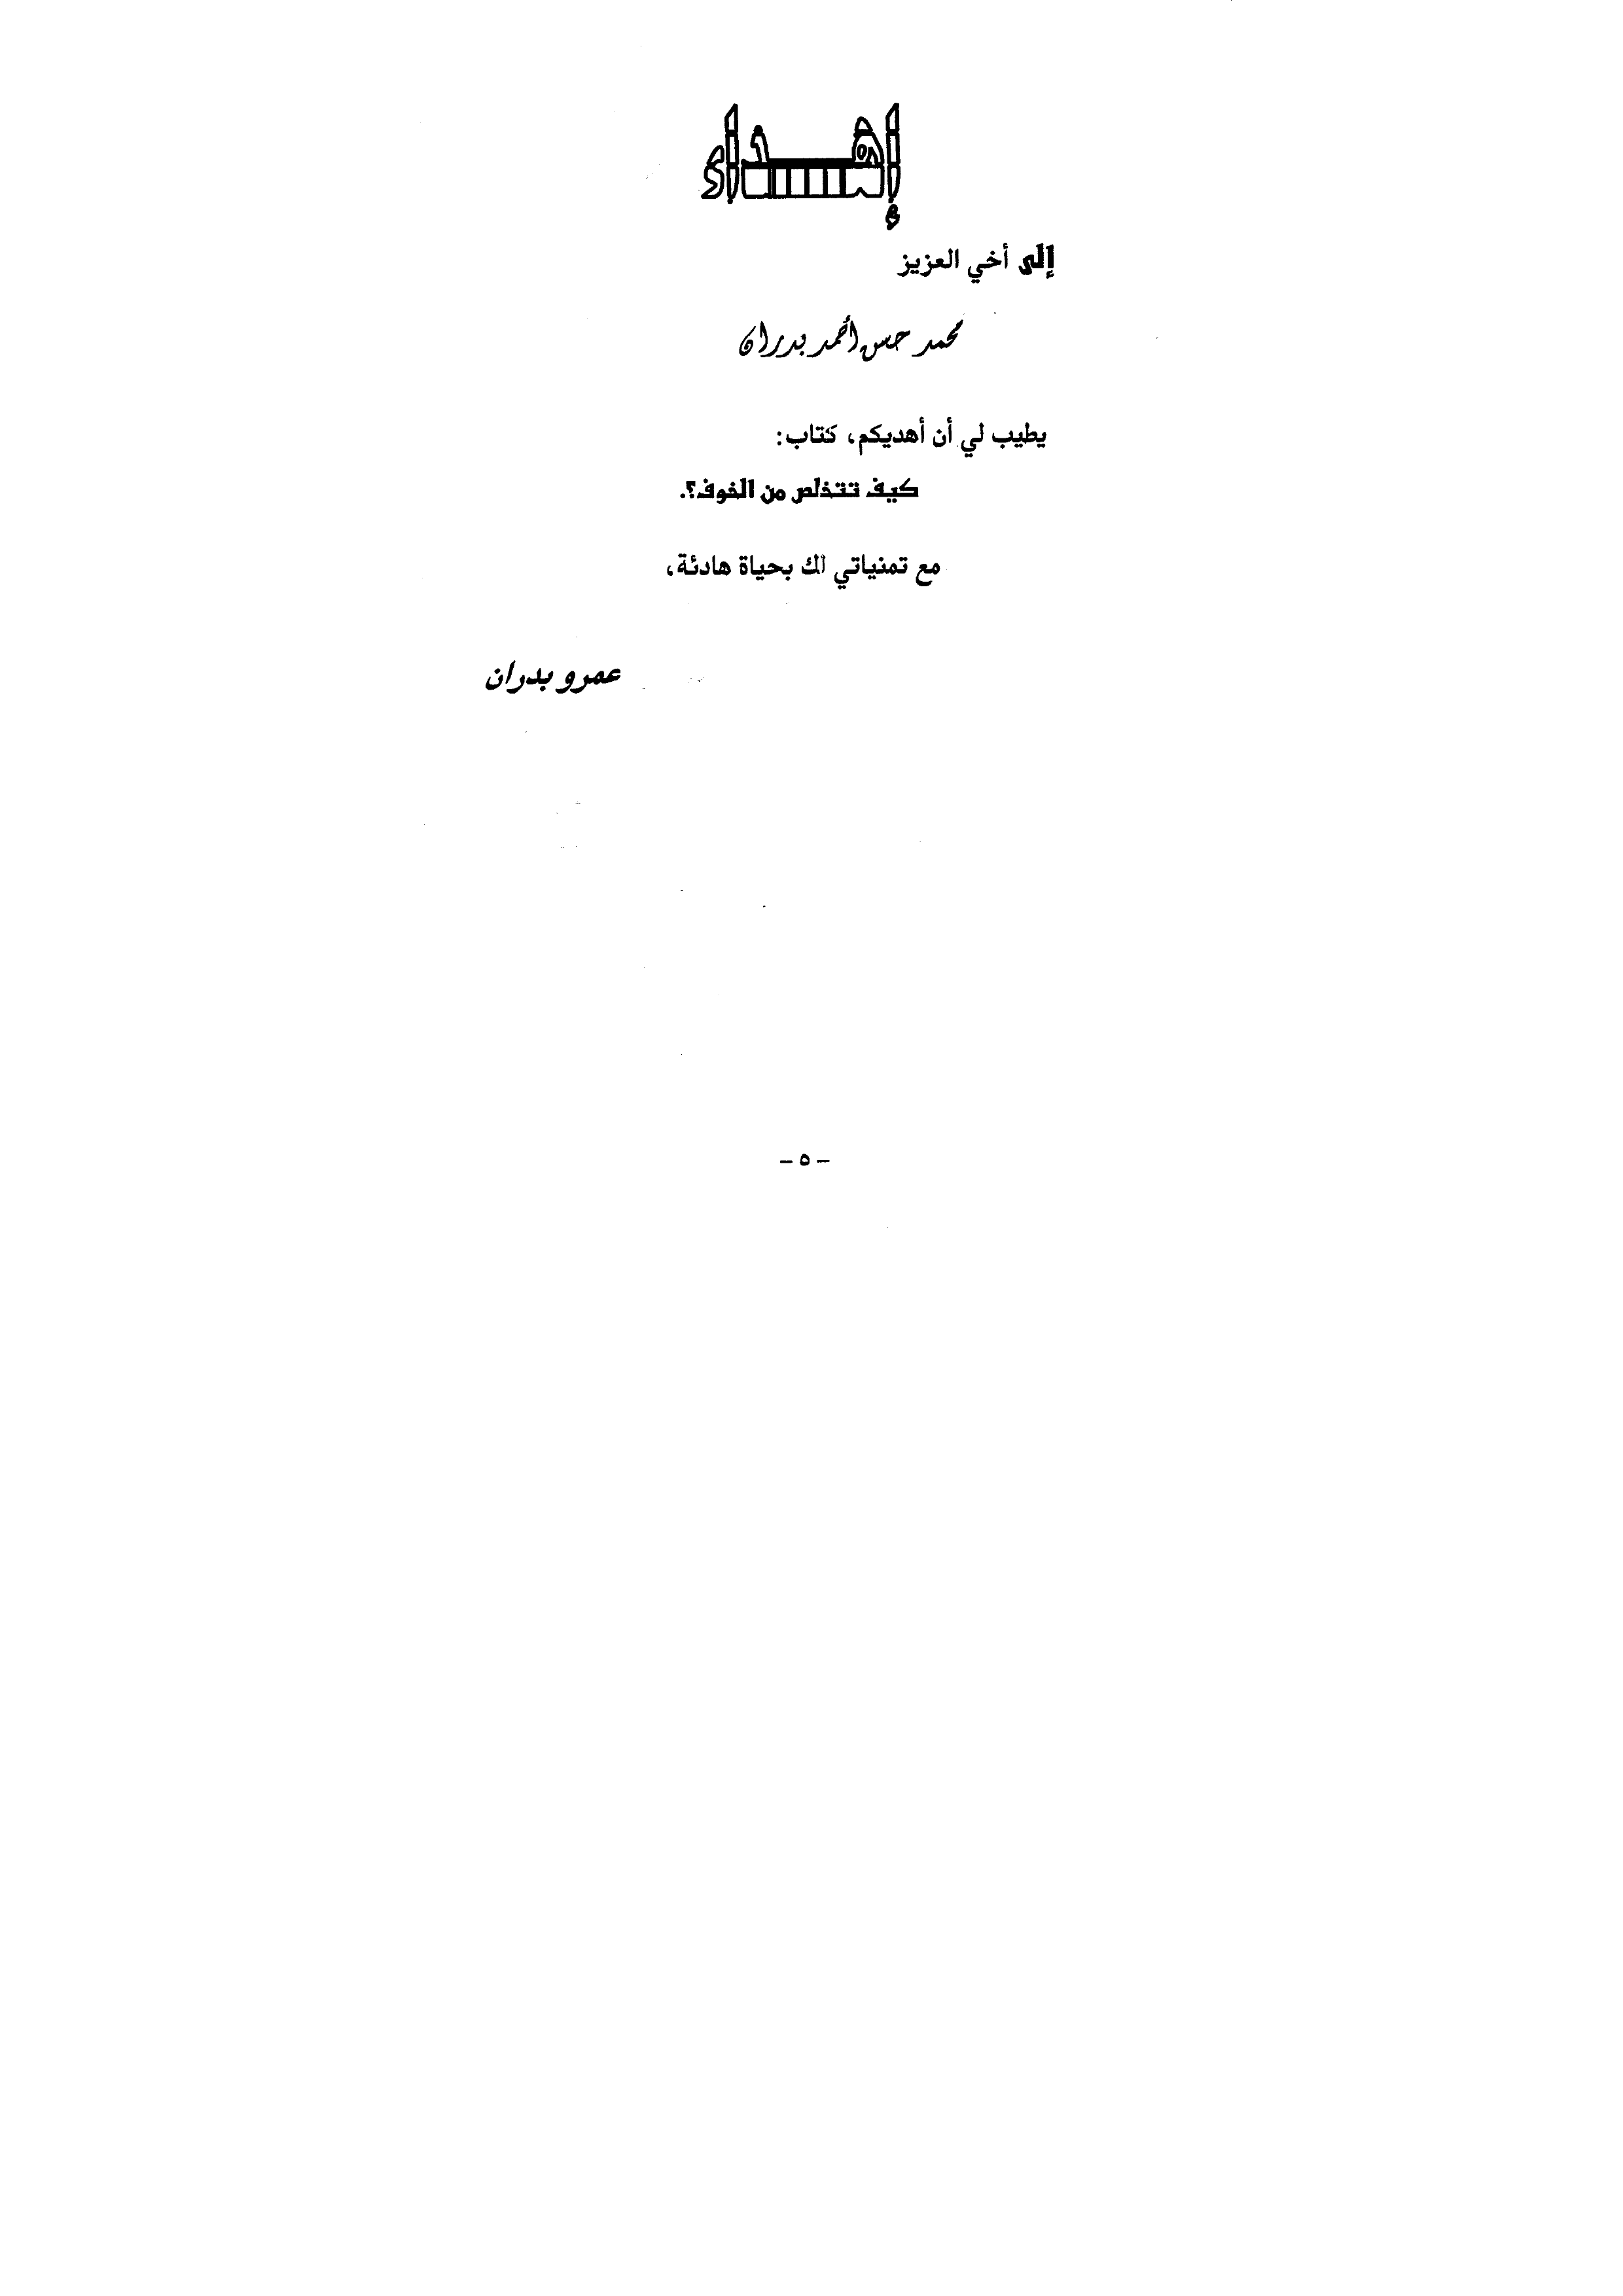 إهداء
إلى أخي العزيز
محمد حسن أحمد بدران
يطيب لي أن أهديكم، كتاب:
كيف تتخلص من الخوف؟.
مع تمنياتي لك بحياة هادئة،
عمرو بدران
– ٥ –